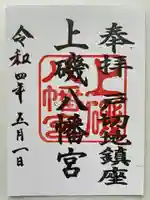 奉拝 戸切地鎮座
上磯八幡宮
令和四年五月一日
上磯八幡宮